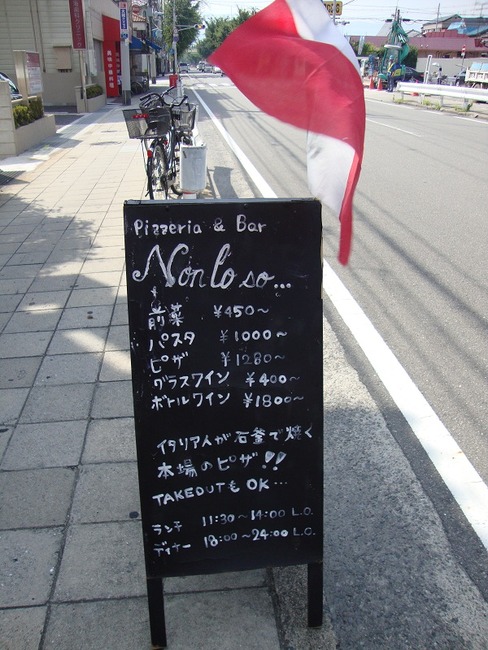 Pizzeria & Bar
Non lo so...
前菜 ¥450~
パスタ ¥1000~
ピザ ¥1280~
グラスワイン ¥400~
ボトルワイン ¥1800~
イタリア人が石釜で焼く
本場のピザ!!
TAKEOUTもOK...
ランチ 11:30~14:00 L.O.
ディナー 18:00~24:00 L.O.